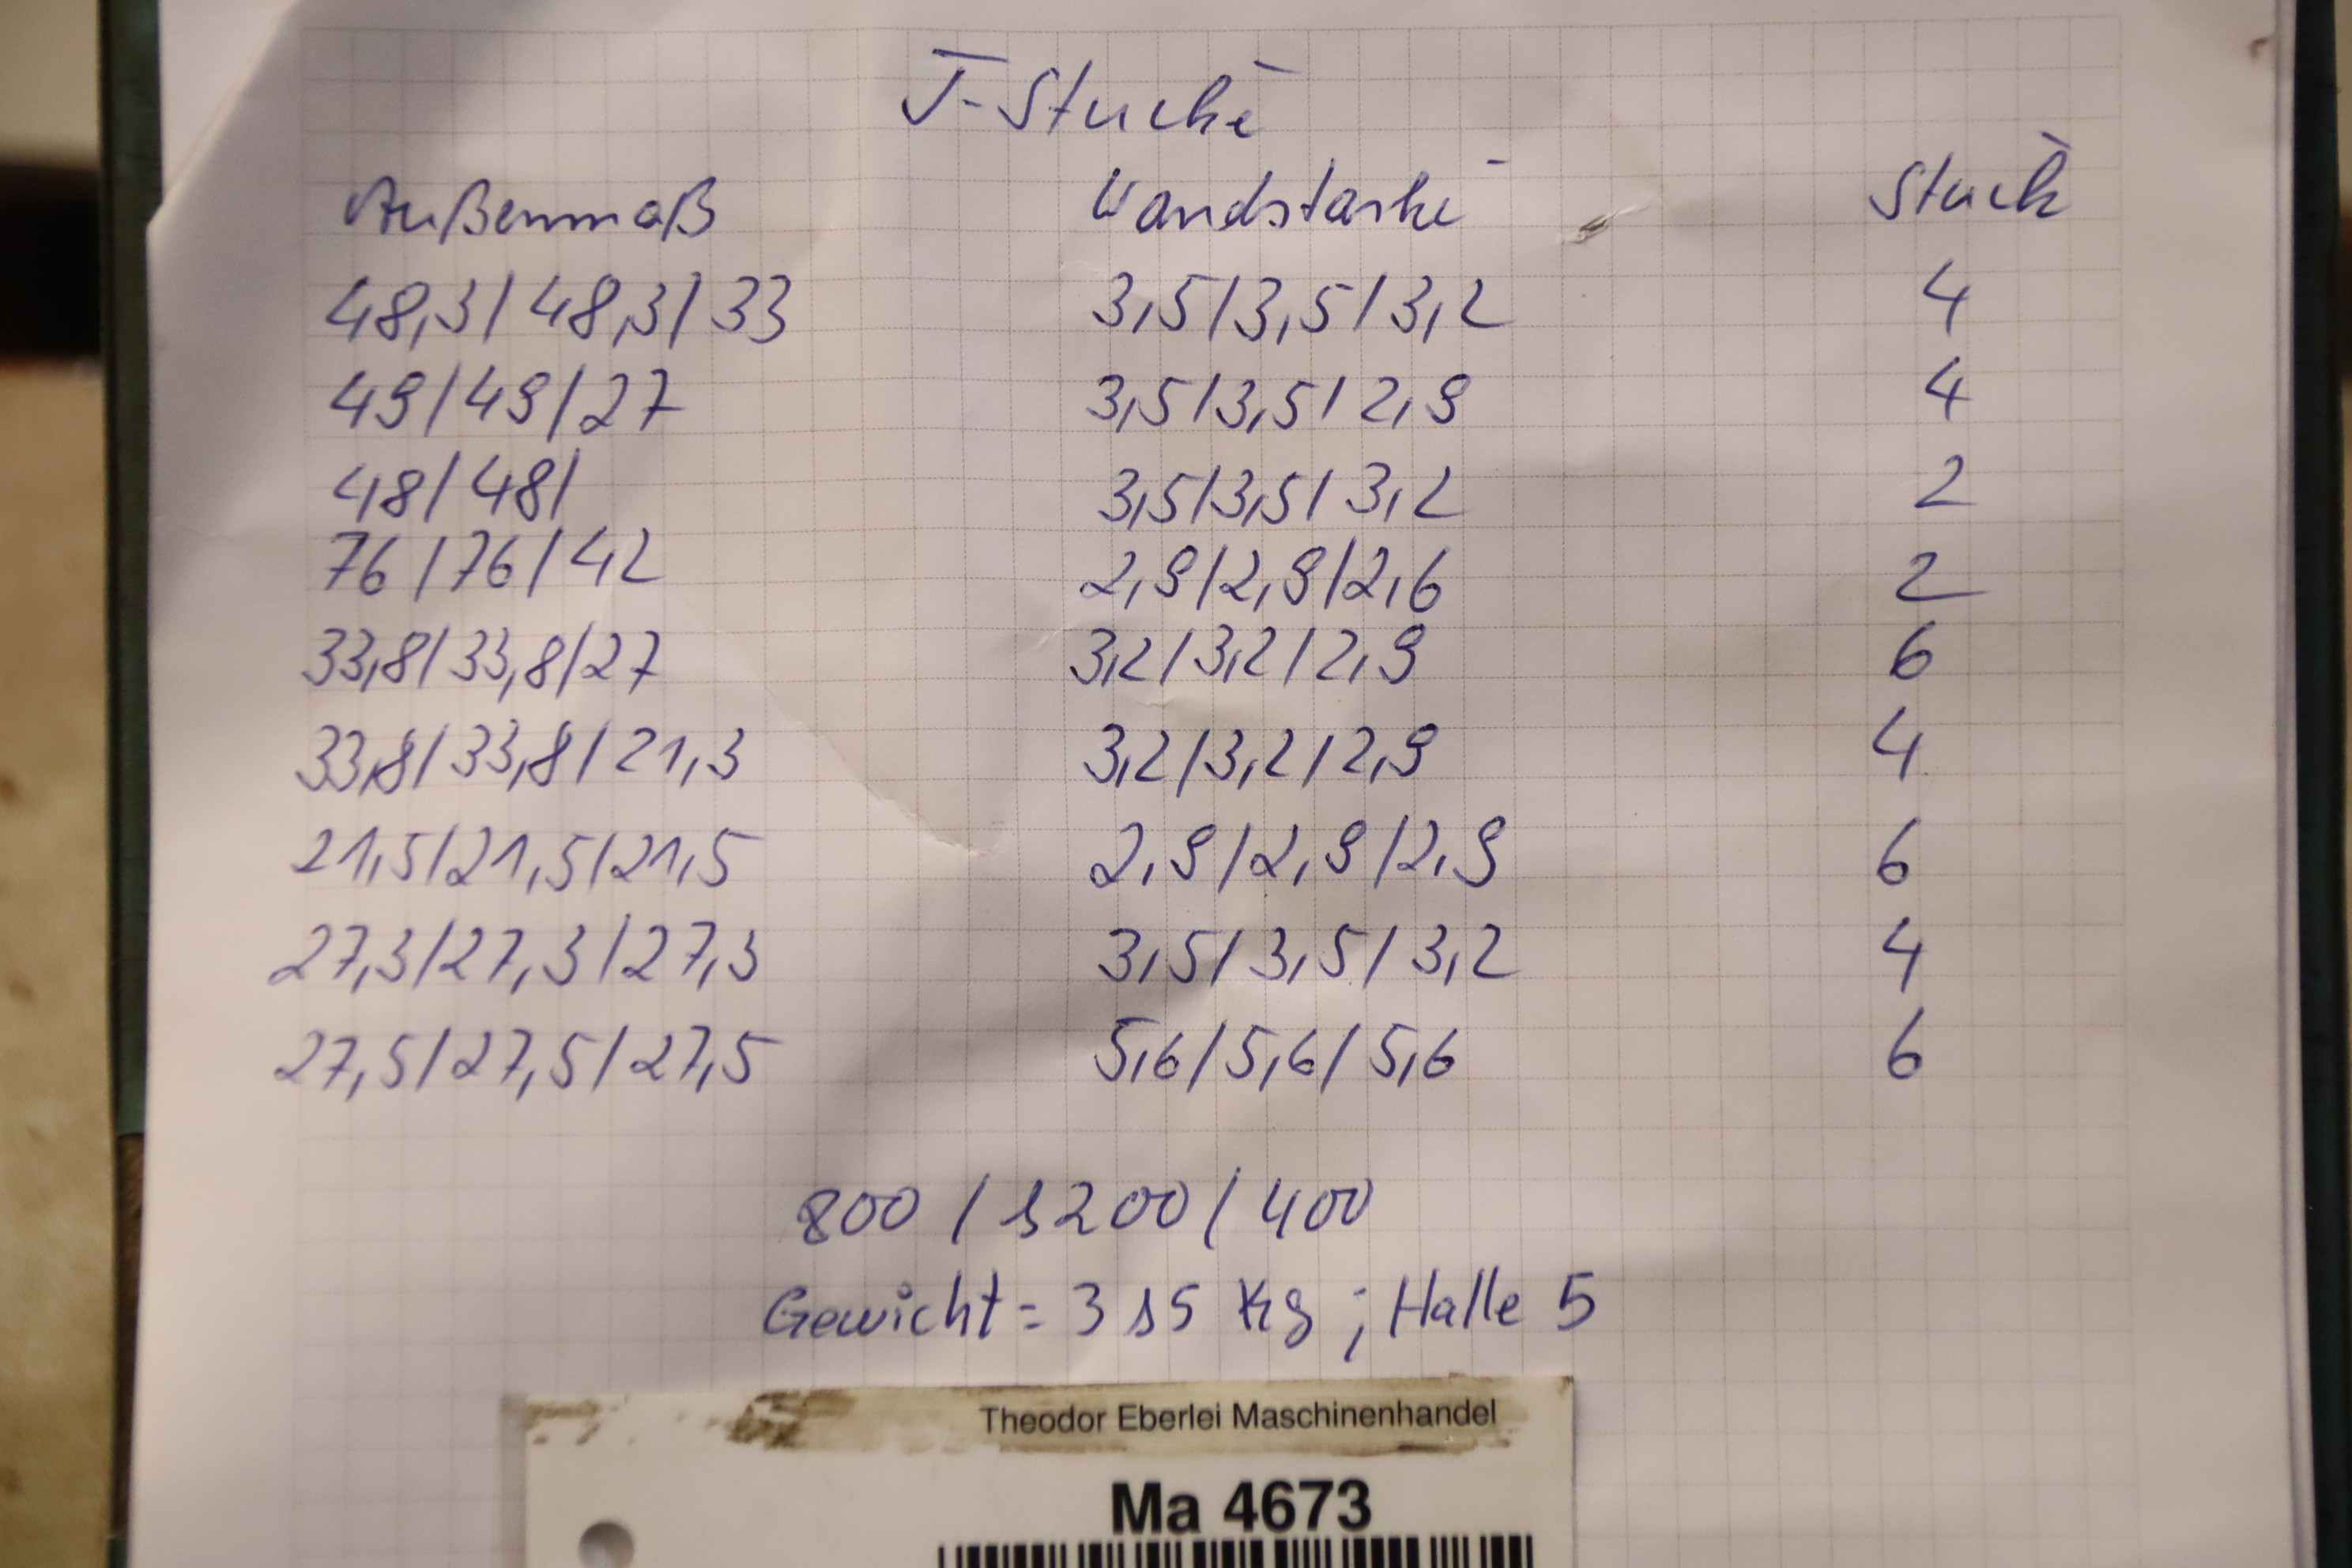 T-Stücke
Außenmaß Wandstärke Stück
48,3/48,3/33 3,5/3,5/3,2 4
49/49/27 3,5/3,5/2,9 4
48/48/ 3,5/3,5/3,2 2
76/76/42 2,9/2,9/2,6 2
33,8/33,8/27 3,2/3,2/2,9 6
33,8/33,8/21,3 3,2/3,2/2,9 4
21,5/21,5/21,5 2,9/2,9/2,9 6
27,3/27,3/27,3 3,5/3,5/3,2 4
27,5/27,5/27,5 5,6/5,6/5,6 6
800 / 1200 / 400
Gewicht = 315 Kg ; Halle 5
Theodor Eberlei Maschinenhandel
Ma 4673